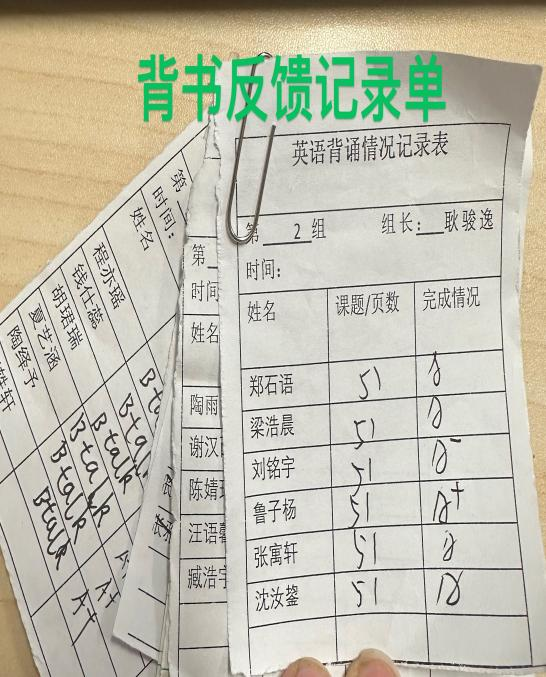 背书反馈记录单
英语背诵情况记录表
第 2 组 组长: 耿骏逸
时间:
姓名 课题/页数 完成情况
郑石语 51
梁浩晨 51
刘铭宇 51
鲁子杨 51
张寓轩 51
沈汝鋆 51
第
时间
姓名
陶雨
谢汉
陈婧
汪语馨
臧浩宇
第
时间:
姓名
程亦瑶 Btalk
钱仕蕊 Btalk A+
胡珺瑞 Btalk A+
夏艺涵 Btalk A+
陶绎子 Btalk A+
轩